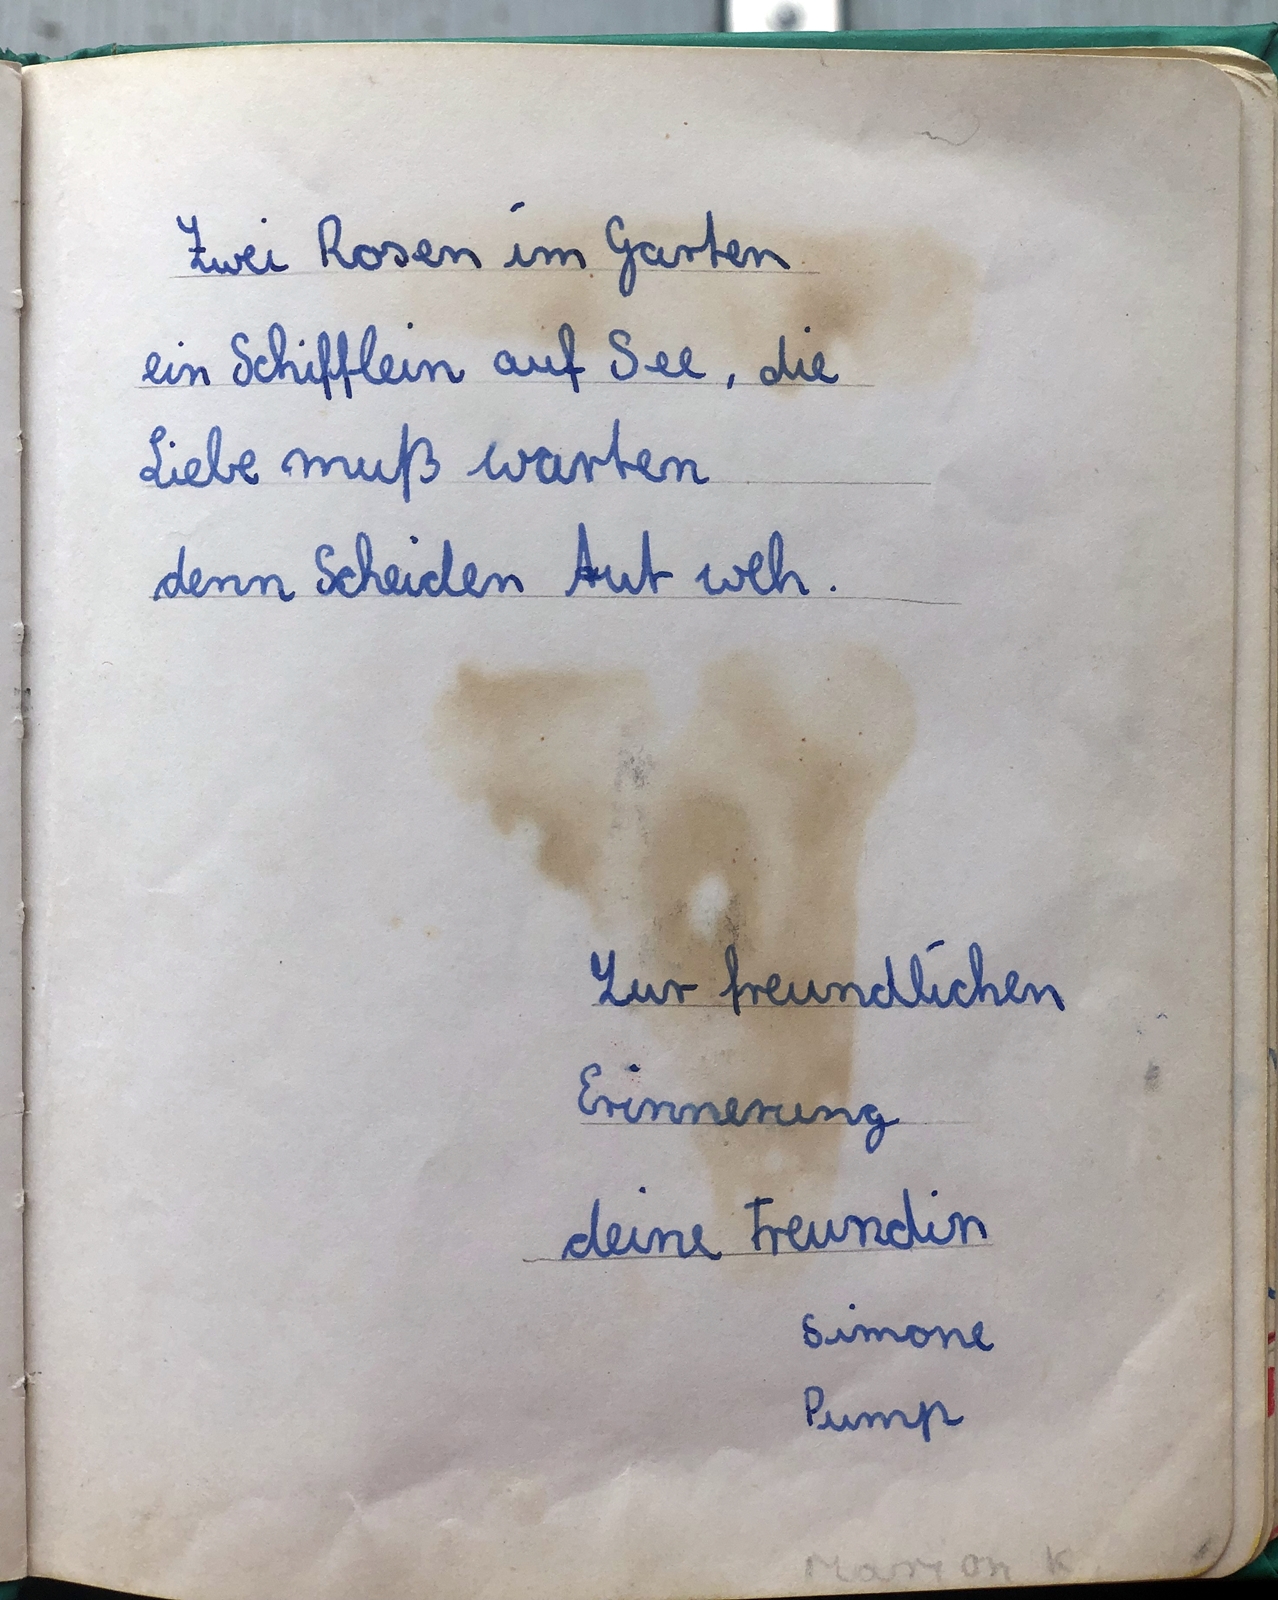 Zwei Rosen im Garten
ein Schifflein auf See, die
Liebe muß warten
denn Scheiden tut weh.
Zur freundlichen
Erinnerung
deine Freundin
Simone
Pump
Marion K.